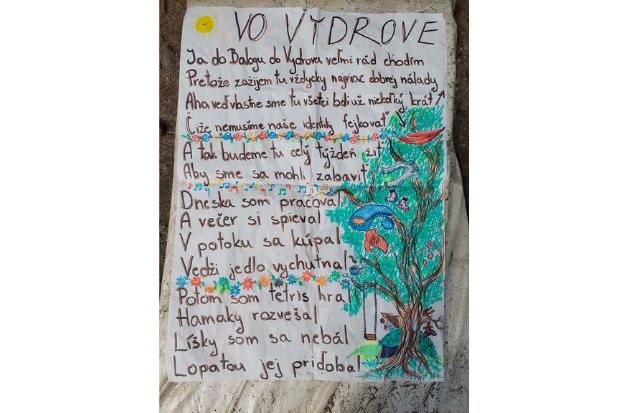 VO VYDROVE
Ja do Balogu do Vydrova veľmi rád chodím
Pretože zažijem tu vždycky najviac dobrej nálady
Aha veď vlastne sme tu všetci boli už niekoľký krát!
Čiže nemusíme naše identity fejkovať
A tak budeme tu celý týždeň žiť
Aby sme sa mohli zabaviť
Dneska som pracoval
A večer si spieval
V potoku sa kúpal
Vedži jedlo vychutnal
Potom som tetris hral
Hamaky rozvešal
Líšky som sa nebál
Lopatou jej pridobal